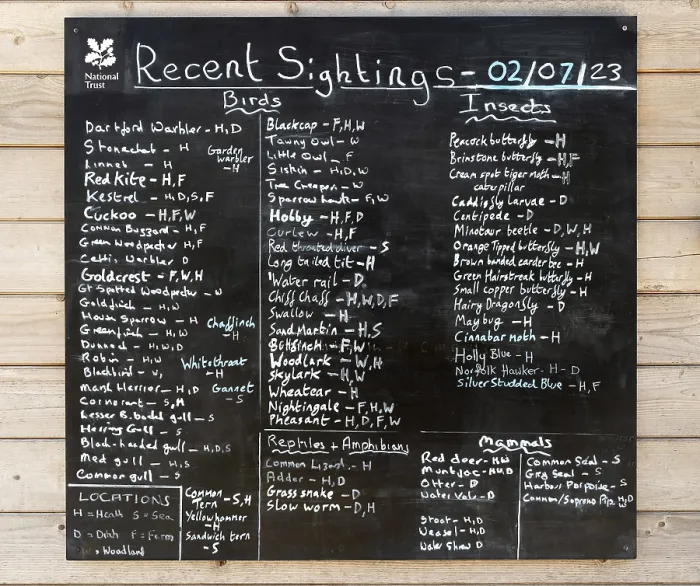 National
Trust
Recent Sightings - 02/07/23
Birds
Dartford Warbler - H,D
Stonechat - H
Garden
warbler
- H
Linnet - H
Red Kite - H,F
Kestrel - H,D,S,F
Cuckoo - H,F,W
Common Buzzard - H,F
Green Woodpecker H,F
Cettis Warbler D
Goldcrest - F,W,H
Gt Spotted Woodpecker - W
Goldfinch - H,W
House Sparrow - H
Chaffinch
- H
Greenfinch - H,W
Dunnock - H,W,D
Robin - H,W
Whitethroat
- H
Blackbird - W,
Marsh Harrier - H,D
Gannet
- S
Cormorant - S,H
Lesser B.backd gull - S
Herring Gull - S
Black-headed gull - H,D,S
Med gull - H,S
Common gull - S
Common
Tern - S,H
Yellowhammer
- H
Sandwich tern
- S
LOCATIONS
H = Heath S = Sea
D = Ditch F = Farm
Woodland
Blackcap - F,H,W
Tawny Owl - W
Little Owl - F
Siskin - H,D,W
Tree Creeper - W
Sparrow hawk - F,W
Hobby - H,F,D
Curlew - H,F
Red throated diver - S
Long tailed tit - H
Water rail - D
Chiff Chaff - H,W,D,F
Swallow - H
Sand Martin - H,S
Bullfinch - F,W
Woodlark - W,H
Skylark - H,W
Wheatear - H
Nightingale - F,H,W
Pheasant - H,D,F,W
Reptiles + Amphibians
Common Lizard - H
Adder - H,D
Grass snake - D
Slow worm - D,H
Insects
Peacock butterfly - H
Brimstone butterfly - H,F
Cream spot tiger moth - H
caterpillar
Caddisfly larvae - D
Centipede - D
Minotaur beetle - D,W,H
Orange Tipped butterfly - H,W
Brown banded carder bee - H
Green Hairstreak butterfly - H
Small copper butterfly - H
Hairy Dragonfly - D
May bug - H
Cinnabar moth - H
Holly Blue - H
Norfolk Hawker - H - D
Silver Studded Blue - H,F
Mammals
Red deer - H,W
Muntjac - H,W,D
Otter - D
Water Vole - D
Stoat - H,D
Weasel - H,D
Water Shrew D
Common Seal - S
Grey Seal - S
Harbour Porpoise - S
Common/Soprano Pip.